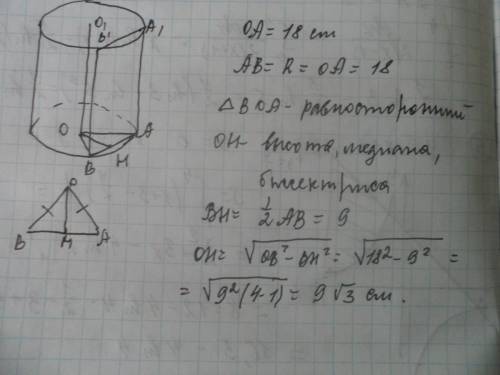 O₁
B' A₁
O A
B H
O
B M A
OA = 18 cm
AB = R = OA = 18
△ BOA - равносторонний
OH - высота, медиана,
биссектриса
BH = 1/2 AB = 9
OH = √(OB² - BH²) = √(18² - 9²) =
= √(9²(4-1)) = 9√3 см.